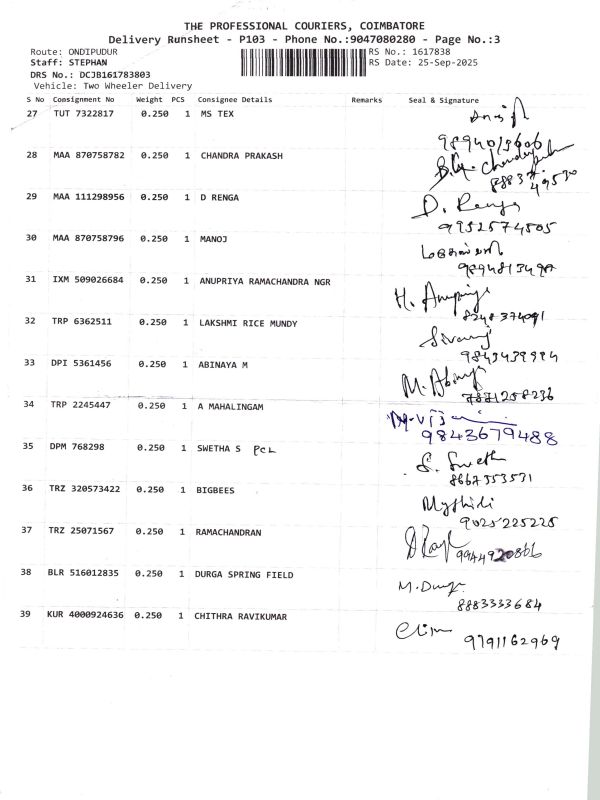 THE PROFESSIONAL COURIERS, COIMBATORE
Delivery Runsheet - P103 - Phone No.:9047080280 - Page No.:3
Route: ONDIPUDUR RS No.: 1617838
Staff: STEPHAN RS Date: 25-Sep-2025
DRS No.: DCJB161783803
Vehicle: Two Wheeler Delivery
S No Consignment No Weight PCS Consignee Details Remarks Seal & Signature
27 TUT 7322817 0.250 1 MS TEX
28 MAA 870758782 0.250 1 CHANDRA PRAKASH
29 MAA 111298956 0.250 1 D RENGA D. Renga
9952574505
30 MAA 870758796 0.250 1 MANOJ
31 IXM 509026684 0.250 1 ANUPRIYA RAMACHANDRA NGR H. Anupriya
8248374091
32 TRP 6362511 0.250 1 LAKSHMI RICE MUNDY
33 DPI 5361456 0.250 1 ABINAYA M M. Abinaya
34 TRP 2245447 0.250 1 A MAHALINGAM
9843679488
35 DPM 768298 0.250 1 SWETHA S PCL S. Swetha
8667353531
36 TRZ 320573422 0.250 1 BIGBEES Mythili
9025225225
37 TRZ 25071567 0.250 1 RAMACHANDRAN
9944920866
38 BLR 516012835 0.250 1 DURGA SPRING FIELD M. Durga
8883333684
39 KUR 4000924636 0.250 1 CHITHRA RAVIKUMAR
9791162969